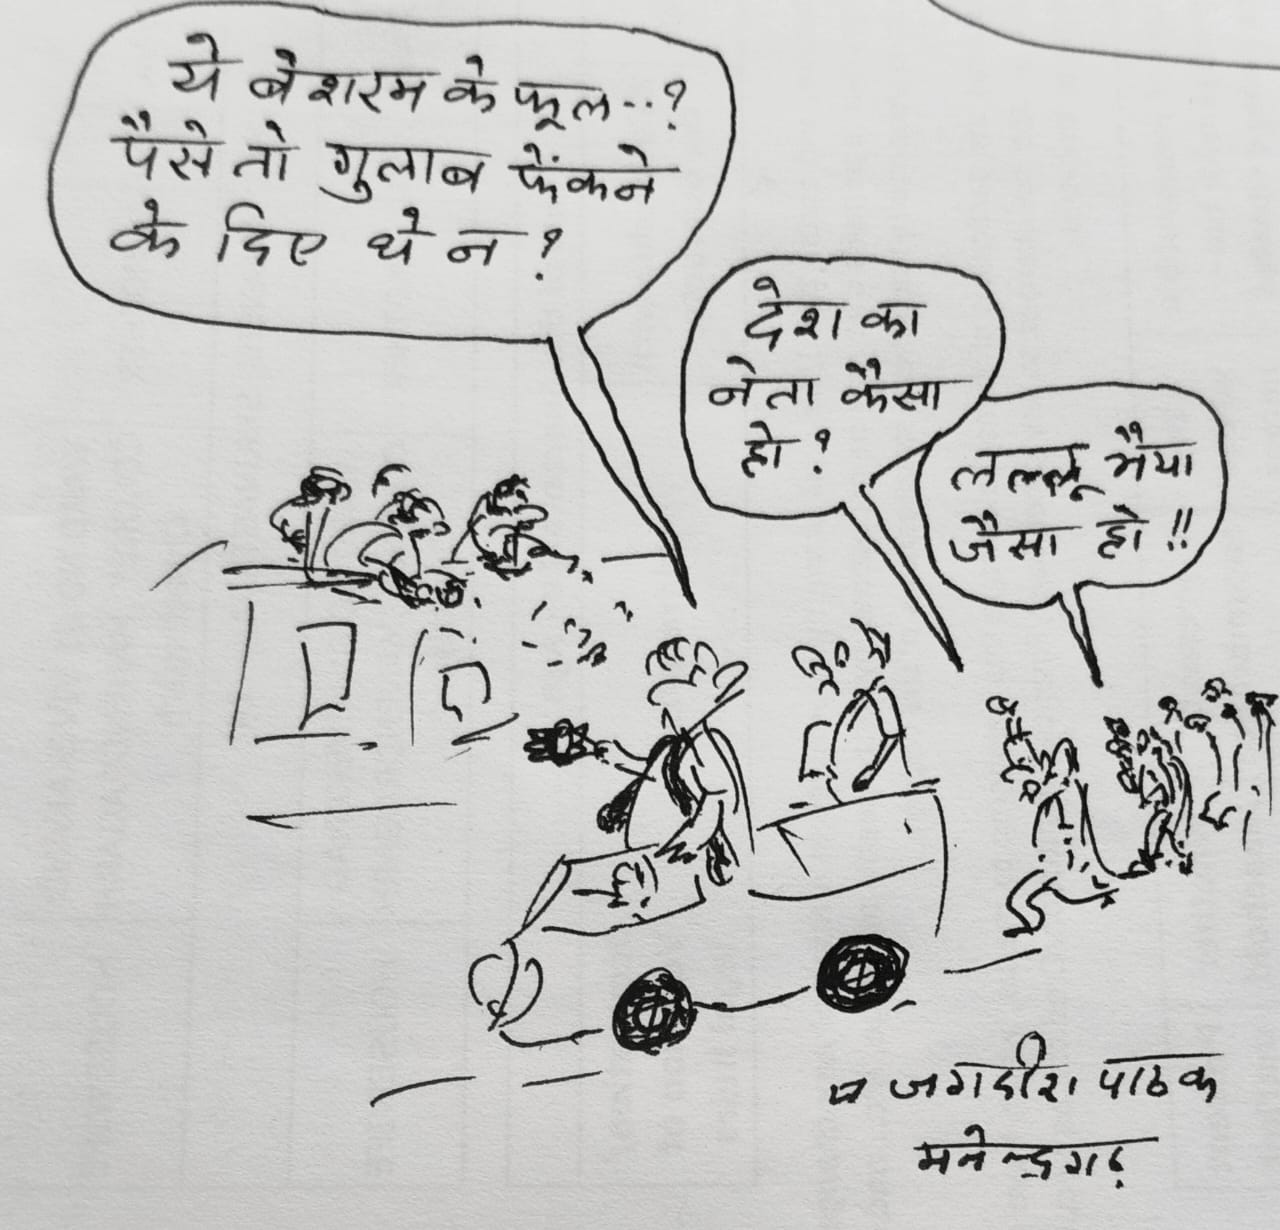 ये बेशरम के फूल..?
पैसे तो गुलाब फेंकने
के दिए थे न?
देश का
नेता कैसा
हो?
लल्लू भैया
जैसा हो!!
जगदीश पाठक
मनेन्द्रगढ़